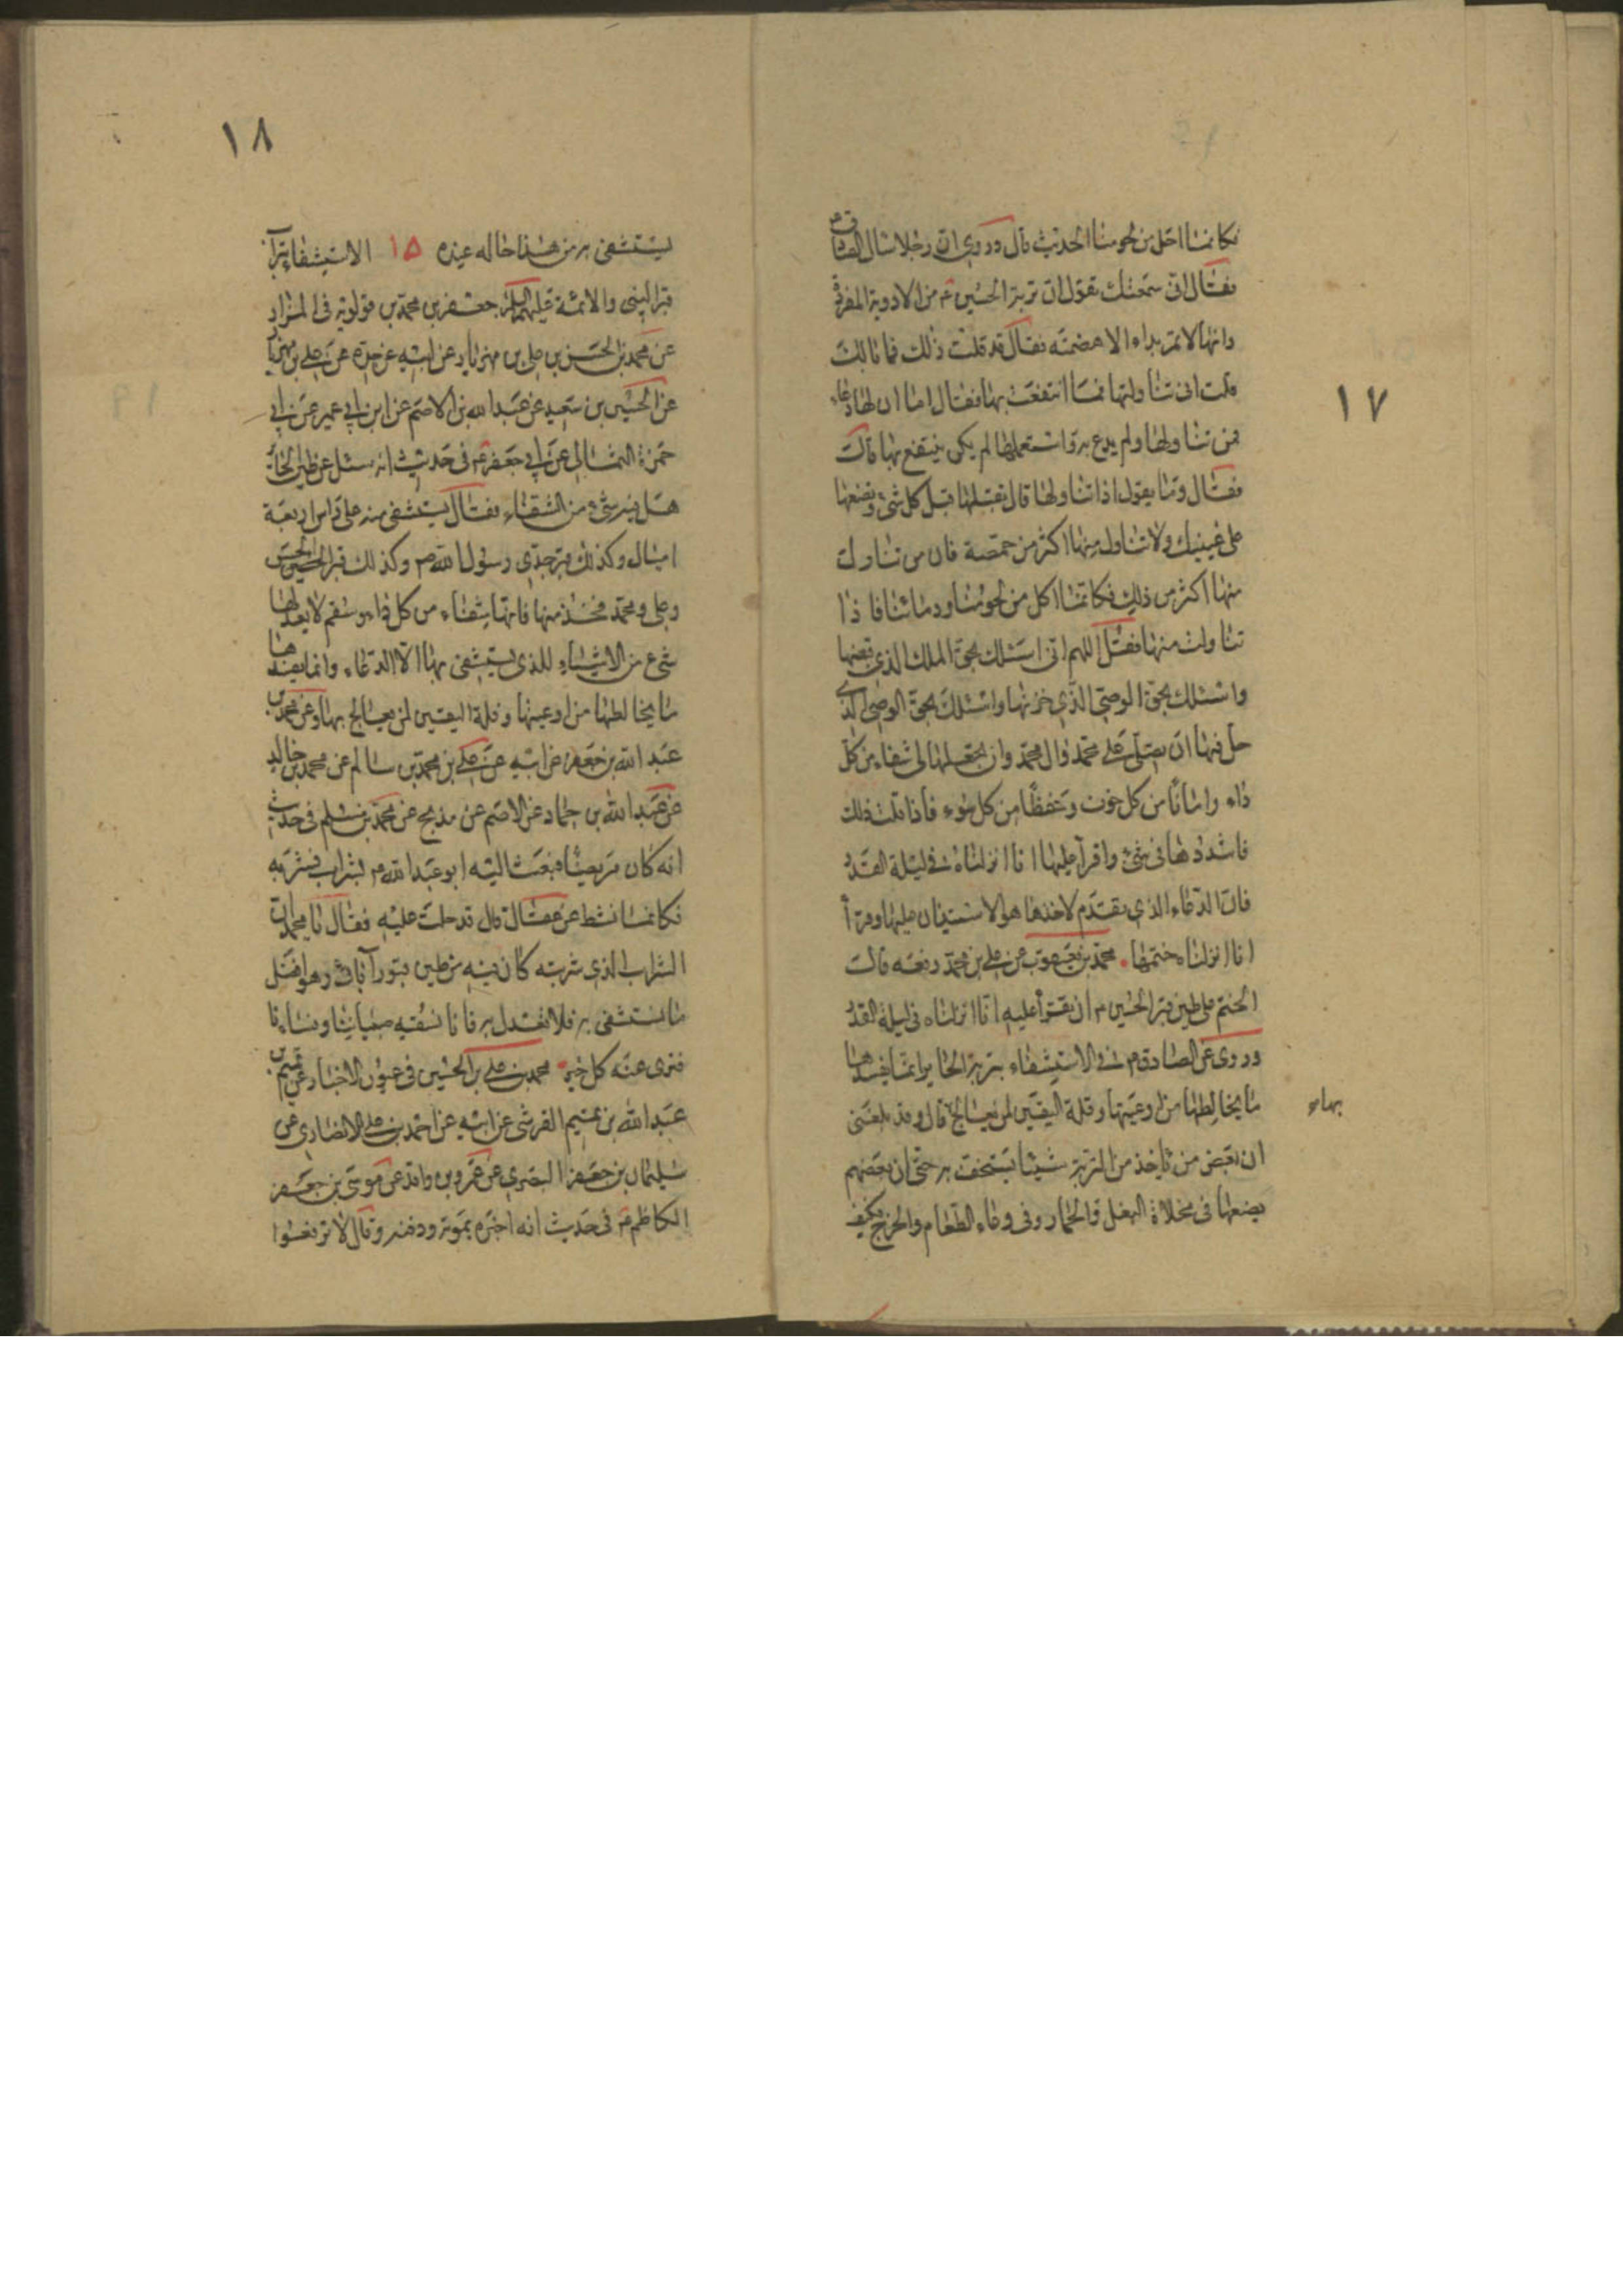 ١٧
فكانما اكل من لحومنا الحديث قال وروي ان رجلا سال الصادق ع
فقال اني سمعتك تقول ان تربة الحسين ع من الادوية المفردة
وانها لا تمر بداء الا هضمته فقال قد قلت ذلك فما بالك
قلت اني تناولتها فما انتفعت بها فقال اما ان لها دعاء
فمن تناولها ولم يدع به واستعملها لم يكن ينتفع بها قال
فقال وما يقول اذا تناولها قال تقبلها قبل كل شئ وتضعها
على عينيك ولا تناول منها اكثر من حمصة فان من تناول
منها اكثر من ذلك فكانما اكل من لحومنا ودمائنا فاذا
تناولت منها فقل اللهم اني اسئلك بحق الملك الذي قبضها
واسئلك بحق الوصي الذي خزنها واسئلك بحق الوصي الذي
حل فيها ان تصلي على محمد وال محمد وان تجعلها لي شفاء من كل
داء وامانا من كل خوف وحفظا من كل سوء فاذا قلت ذلك
فاشددها في شئ واقرا عليها انا انزلناه في ليلة القدر
فان الدعاء الذي يقدم لاخذها هو الاستيذان عليها وقرأ
انا انزلناه ختمها محمد بن يعقوب عن علي بن محمد رفعه قال
الختم على طين قبر الحسين ع ان يقرأ عليه انا انزلناه في ليلة القدر
وروى عن الصادق ع في الاستشفاء بتربة الحاير انما يفسدها
ما يخالطها من اوعيتها وقلة اليقين لمن يعالج قال وقد بلغني
بهاء
ان بعض من ياخذ من التربة شيئا يستخف به حتى ان بعضهم
يضعها في مخلاة البغل والحمار وفي وعاء الطعام والخرج فكيف
١٨
يستشفى به من هذا حاله عنده ١٥ الاستشفاء بتراب
قبر النبي والائمة عليهم السلام جعفر بن محمد بن قولويه في المزار
عن محمد بن الحسن بن علي بن مهزيار عن ابيه عن جده عن علي بن مهزيار
عن الحسين بن سعيد عن عبد الله بن الاصم عن ابن ابي عمير عن ابي
حمزة الثمالي عن ابي جعفر ع في حديث انه سئل عن طين الحائر
هل فيه شئ من الشفاء فقال يستشفى منه على راس اربعة
اميال وكذلك قبر جدي رسول الله ص وكذلك قبر الحسين والحسن
وعلي ومحمد فخذ منها فانها شفاء من كل داء وسقم لا يعدلها
شئ من الاشياء للذي يستشفى بها الا الدعاء وانما يفسدها
ما يخالطها من اوعيتها وقلة اليقين لمن يعالج بها وعن محمد بن
عبد الله بن جعفر عن ابيه عن علي بن محمد بن سالم عن محمد بن خالد
عن عبد الله بن حماد عن الاصم عن مدلج عن محمد بن مسلم في حديث
انه كان مريضا فبعث اليه ابو عبد الله ع بشراب فشربه
فكانما نشط عن عقال قال فدخلت عليه فقال يا محمد ان
الشراب الذي شربته كان فيه من طين قبور آبائي وهو افضل
ما نستشفى به فلا تعدل به فانا نسقيه صبياننا ونساءنا
فنرى عنه كل خير محمد بن علي بن الحسين في عيون الاخبار عن تميم بن
عبد الله بن تميم القرشي عن ابيه عن احمد بن علي الانصاري عن
سليمان بن جعفر البصري عن عمرو بن واقد عن موسى بن جعفر
الكاظم ع في حديث انه اخبره بموته ودفنه وقال لا ترفعوا